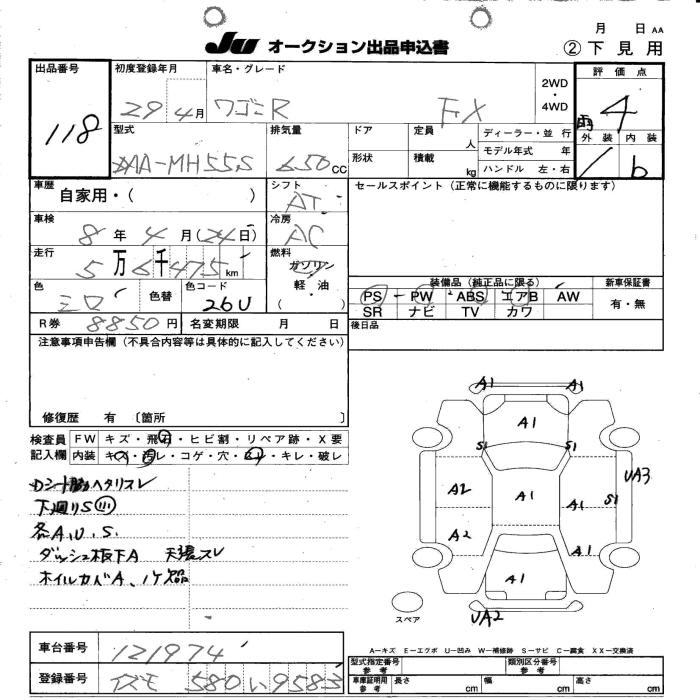 月 日 AA
JU オークション出品申込書 ②下見用
出品番号 初度登録年月 車名・グレード 評価点
118 29年4月 ワゴンR FX 2WD・4WD 雨 4
外装 内装
型式 排気量 ドア 定員 人 ディーラー・並行
DAA-MH55S 650CC 形状 積載 kg モデル年式 年
ハンドル 左・右
b
車歴 自家用・( ) シフト AT セールスポイント(正常に機能するものに限ります)
車検 8年4月(24日) 冷房 AC
走行 5万6千475km 燃料 ガソリン
軽油
( )
色 シロ 色替 色コード 26U
装備品(純正品に限る) 新車保証書
PS PW ABS エアB AW 有・無
SR ナビ TV カワ
R券 8850円 名変期限 月 日 後日品
注意事項申告欄(不具合内容等は具体的に記入してください)
修復歴 有 〔箇所 〕
検査員 FW キズ・飛石・ヒビ割・リペア跡・X要
記入欄 内装 キズ・汚レ・コゲ・穴・・キレ・破レ
ヘタリスレ
下廻りS
各A.U.S.
ダッシュ板下A 天張スレ
ホイルカバA、ハケ
A1 A1
A1
S1 S1
A2 A1 A1 S1 UA3
A2 A1
A1
UA2
スペア
A―キズ E―エクボ U―凹み W―補修跡 S―サビ C―腐食 XX―交換済
車台番号 121974
登録番号 イズモ 580 い 9583
型式指定番号 参考 類別区分番号 参考
車庫証明用 参考 長さ cm 幅 cm 高さ cm